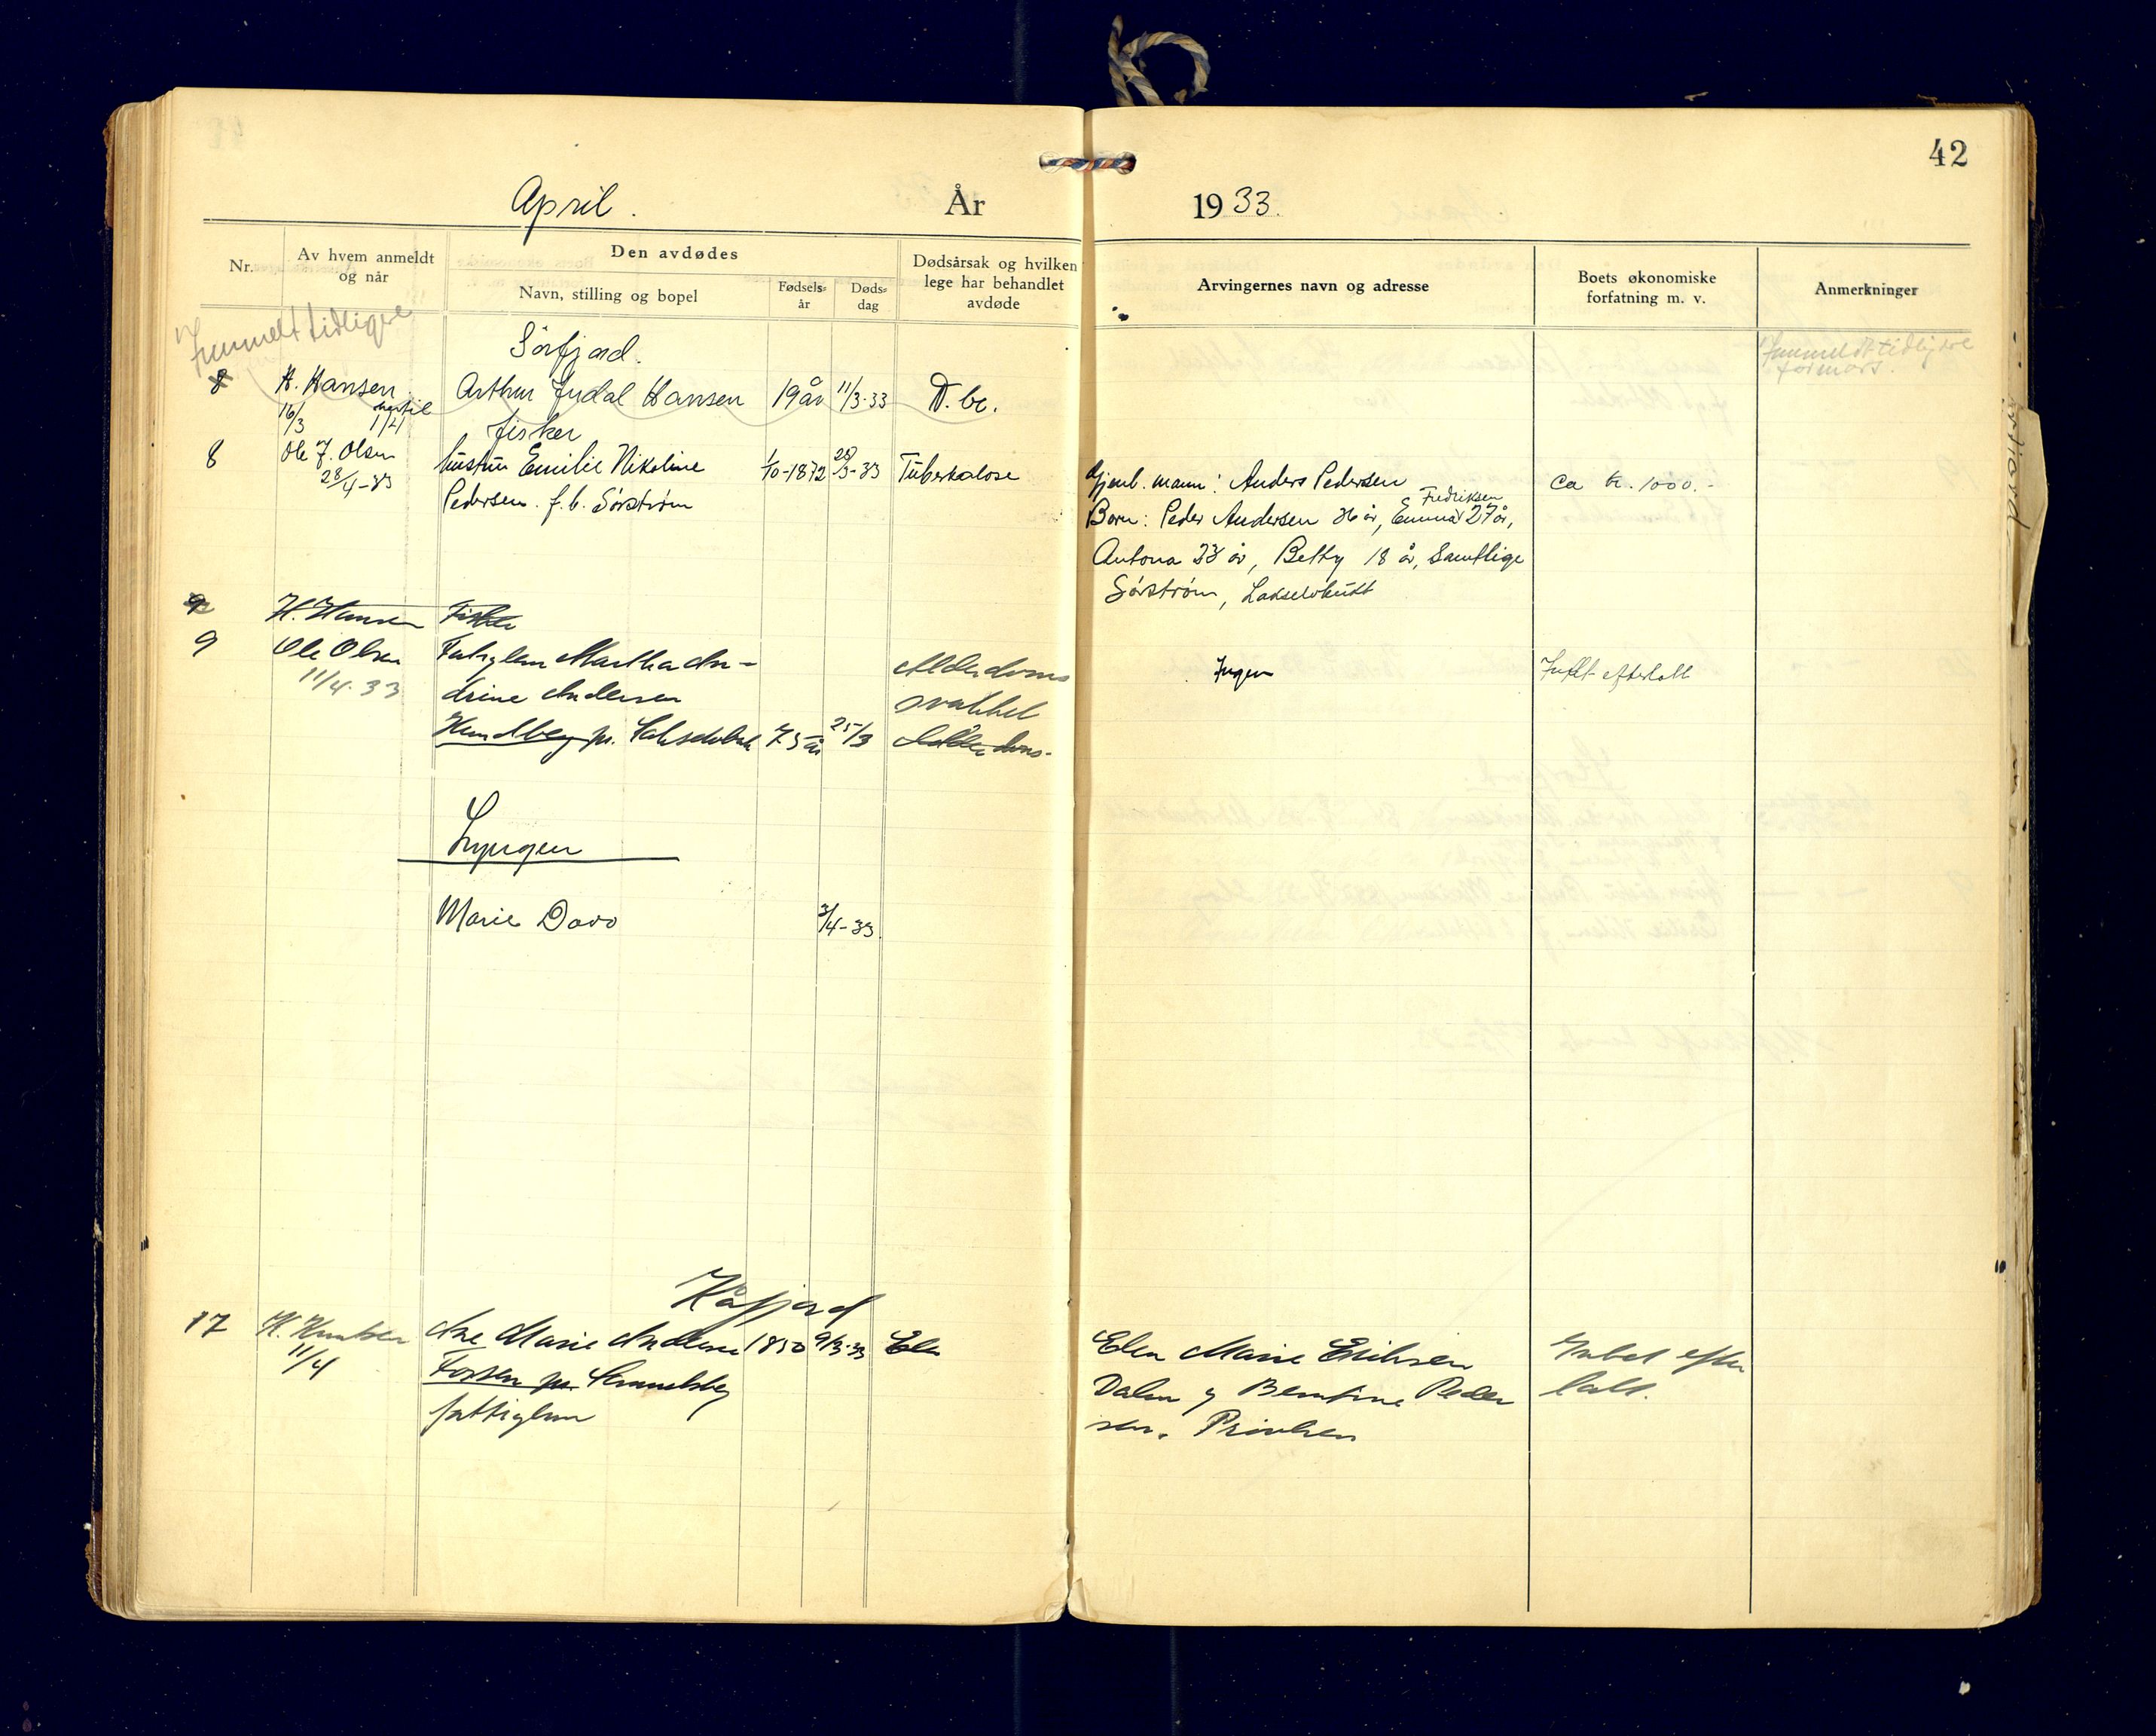 42
April. År 1933.
Nr.
Av hvem anmeldt og når
Den avdødes
Navn, stilling og bopel
Fødsels-år
Døds-dag
Dødsårsak og hvilken lege har behandlet avdøde
Arvingernes navn og adresse
Boets økonomiske forfatning m. v.
Anmerkninger
Innmeldt tidligere
Sörfjord.
Innmeldt tidligere
8 H. Hansen Arthur Indal Hansen 19 år 11/3-33 T. bc.
16/3 1/21 fisker
8 Ole J. Olsen hustru Emilie Nikoline 1/10-1872 28/3-33 Tuberkulose Gjenl. mann: Anders Pedersen Ca kr. 1000.-
28/4-33 Pedersen f. b. Sörström Barn: Peder Andersen 36 år, Emma Fredriksen 27 år,
Antona 23 år, Betty 18 år, Samtlige
Sörström, Lakselvbukt
9 H. Hansen Fisker
9 Ole Olsen Fattiglem Martha An- Alderdoms Ingen Intet efterlatt
11/4.33 drine Andersen svakhet
pr. Lakselvbuk 75 år 25/3
Lyngen
Marie Davo 3/4-33.
Kåfjord
17 Ane Marie Andersen 1850 9/3-33 Elen Elen Marie Eriksen Intet efter
11/4 Fossen pr. Dalen og Berntine Peder latt.
fattiglem sen.